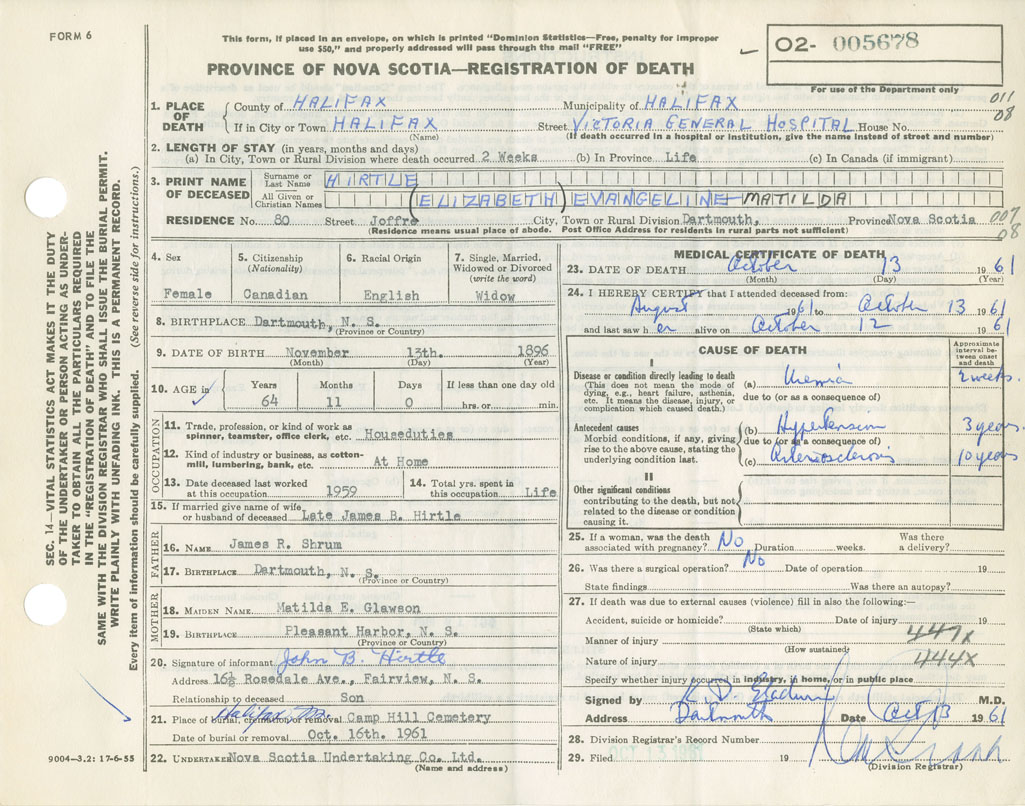 FORM 6
This form, if placed in an envelope, on which is printed "Dominion Statistics—Free, penalty for improper
use $50," and properly addressed will pass through the mail "FREE"
02- 005678
PROVINCE OF NOVA SCOTIA—REGISTRATION OF DEATH
For use of the Department only
011
08
1. PLACE OF DEATH
County of HALIFAX Municipality of HALIFAX
If in City or Town HALIFAX Street VICTORIA GENERAL HOSPITAL House No.
(Name) (If death occurred in a hospital or institution, give the name instead of street and number)
2. LENGTH OF STAY (in years, months and days)
(a) In City, Town or Rural Division where death occurred 2 Weeks (b) In Province Life (c) In Canada (if immigrant)
3. PRINT NAME OF DECEASED
Surname or Last Name HIRTLE
All Given or Christian Names (ELIZABETH) EVANGELINE-MATILDA
RESIDENCE No. 80 Street Joffre City, Town or Rural Division Dartmouth, Province Nova Scotia
007
08
(Residence means usual place of abode. Post Office Address for residents in rural parts not sufficient)
4. Sex
Female
5. Citizenship
(Nationality)
Canadian
6. Racial Origin
English
7. Single, Married,
Widowed or Divorced
(write the word)
Widow
8. BIRTHPLACE Dartmouth, N. S.
(Province or Country)
9. DATE OF BIRTH November 13th. 1896
(Month) (Day) (Year)
10. AGE in
Years Months Days If less than one day old
64 11 0 hrs. or min.
OCCUPATION
11. Trade, profession, or kind of work as
spinner, teamster, office clerk, etc. Houseduties
12. Kind of industry or business, as cotton-
mill, lumbering, bank, etc. At Home
13. Date deceased last worked
at this occupation 1959
14. Total yrs. spent in
this occupation Life
15. If married give name of wife
or husband of deceased Late James B. Hirtle
FATHER
16. NAME James R. Shrum
17. BIRTHPLACE Dartmouth, N. S.
(Province or Country)
MOTHER
18. MAIDEN NAME Matilda E. Glawson
19. BIRTHPLACE Pleasant Harbor, N. S.
(Province or Country)
20. Signature of informant John B. Hirtle
Address 16½ Rosedale Ave., Fairview, N. S.
Relationship to deceased Son
21. Place of burial, cremation or removal Camp Hill Cemetery
Halifax
Date of burial or removal Oct. 16th. 1961
22. UNDERTAKER Nova Scotia Undertaking Co. Ltd.
(Name and address)
MEDICAL CERTIFICATE OF DEATH
23. DATE OF DEATH October 13 1961
(Month) (Day) (Year)
24. I HEREBY CERTIFY that I attended deceased from:
August 1961 to October 13 1961
and last saw her alive on October 12 1961
CAUSE OF DEATH
Approximate
interval be-
tween onset
and death
I
Disease or condition directly leading to death
(This does not mean the mode of
dying, e.g., heart failure, asthenia,
etc. It means the disease, injury, or
complication which caused death.)
(a) Uremia 2 weeks
due to (or as a consequence of)
Antecedent causes
Morbid conditions, if any, giving
rise to the above cause, stating the
underlying condition last.
(b) Hypertension 3 years
due to (or as a consequence of)
(c) Arteriosclerosis 10 years
II
Other significant conditions
contributing to the death, but not
related to the disease or condition
causing it.
25. If a woman, was the death
associated with pregnancy? No Duration weeks. Was there
a delivery?
26. Was there a surgical operation? No Date of operation 19
State findings Was there an autopsy?
27. If death was due to external causes (violence) fill in also the following:—
Accident, suicide or homicide? Date of injury 19
(State which)
Manner of injury 447x
(How sustained)
Nature of injury 444X
Specify whether injury occurred in industry, in home, or in public place
Signed by M.D.
Address Dartmouth Date Oct 13 1961
28. Division Registrar's Record Number
29. Filed 19
(Division Registrar)
9004—3,2: 17-6-55
SEC. 14—VITAL STATISTICS ACT MAKES IT THE DUTY
OF THE UNDERTAKER OR PERSON ACTING AS UNDER-
TAKER TO OBTAIN ALL THE PARTICULARS REQUIRED
IN THE "REGISTRATION OF DEATH" AND TO FILE THE
SAME WITH THE DIVISION REGISTRAR WHO SHALL ISSUE THE BURIAL PERMIT.
WRITE PLAINLY WITH UNFADING INK. THIS IS A PERMANENT RECORD.
Every item of information should be carefully supplied. (See reverse side for instructions.)